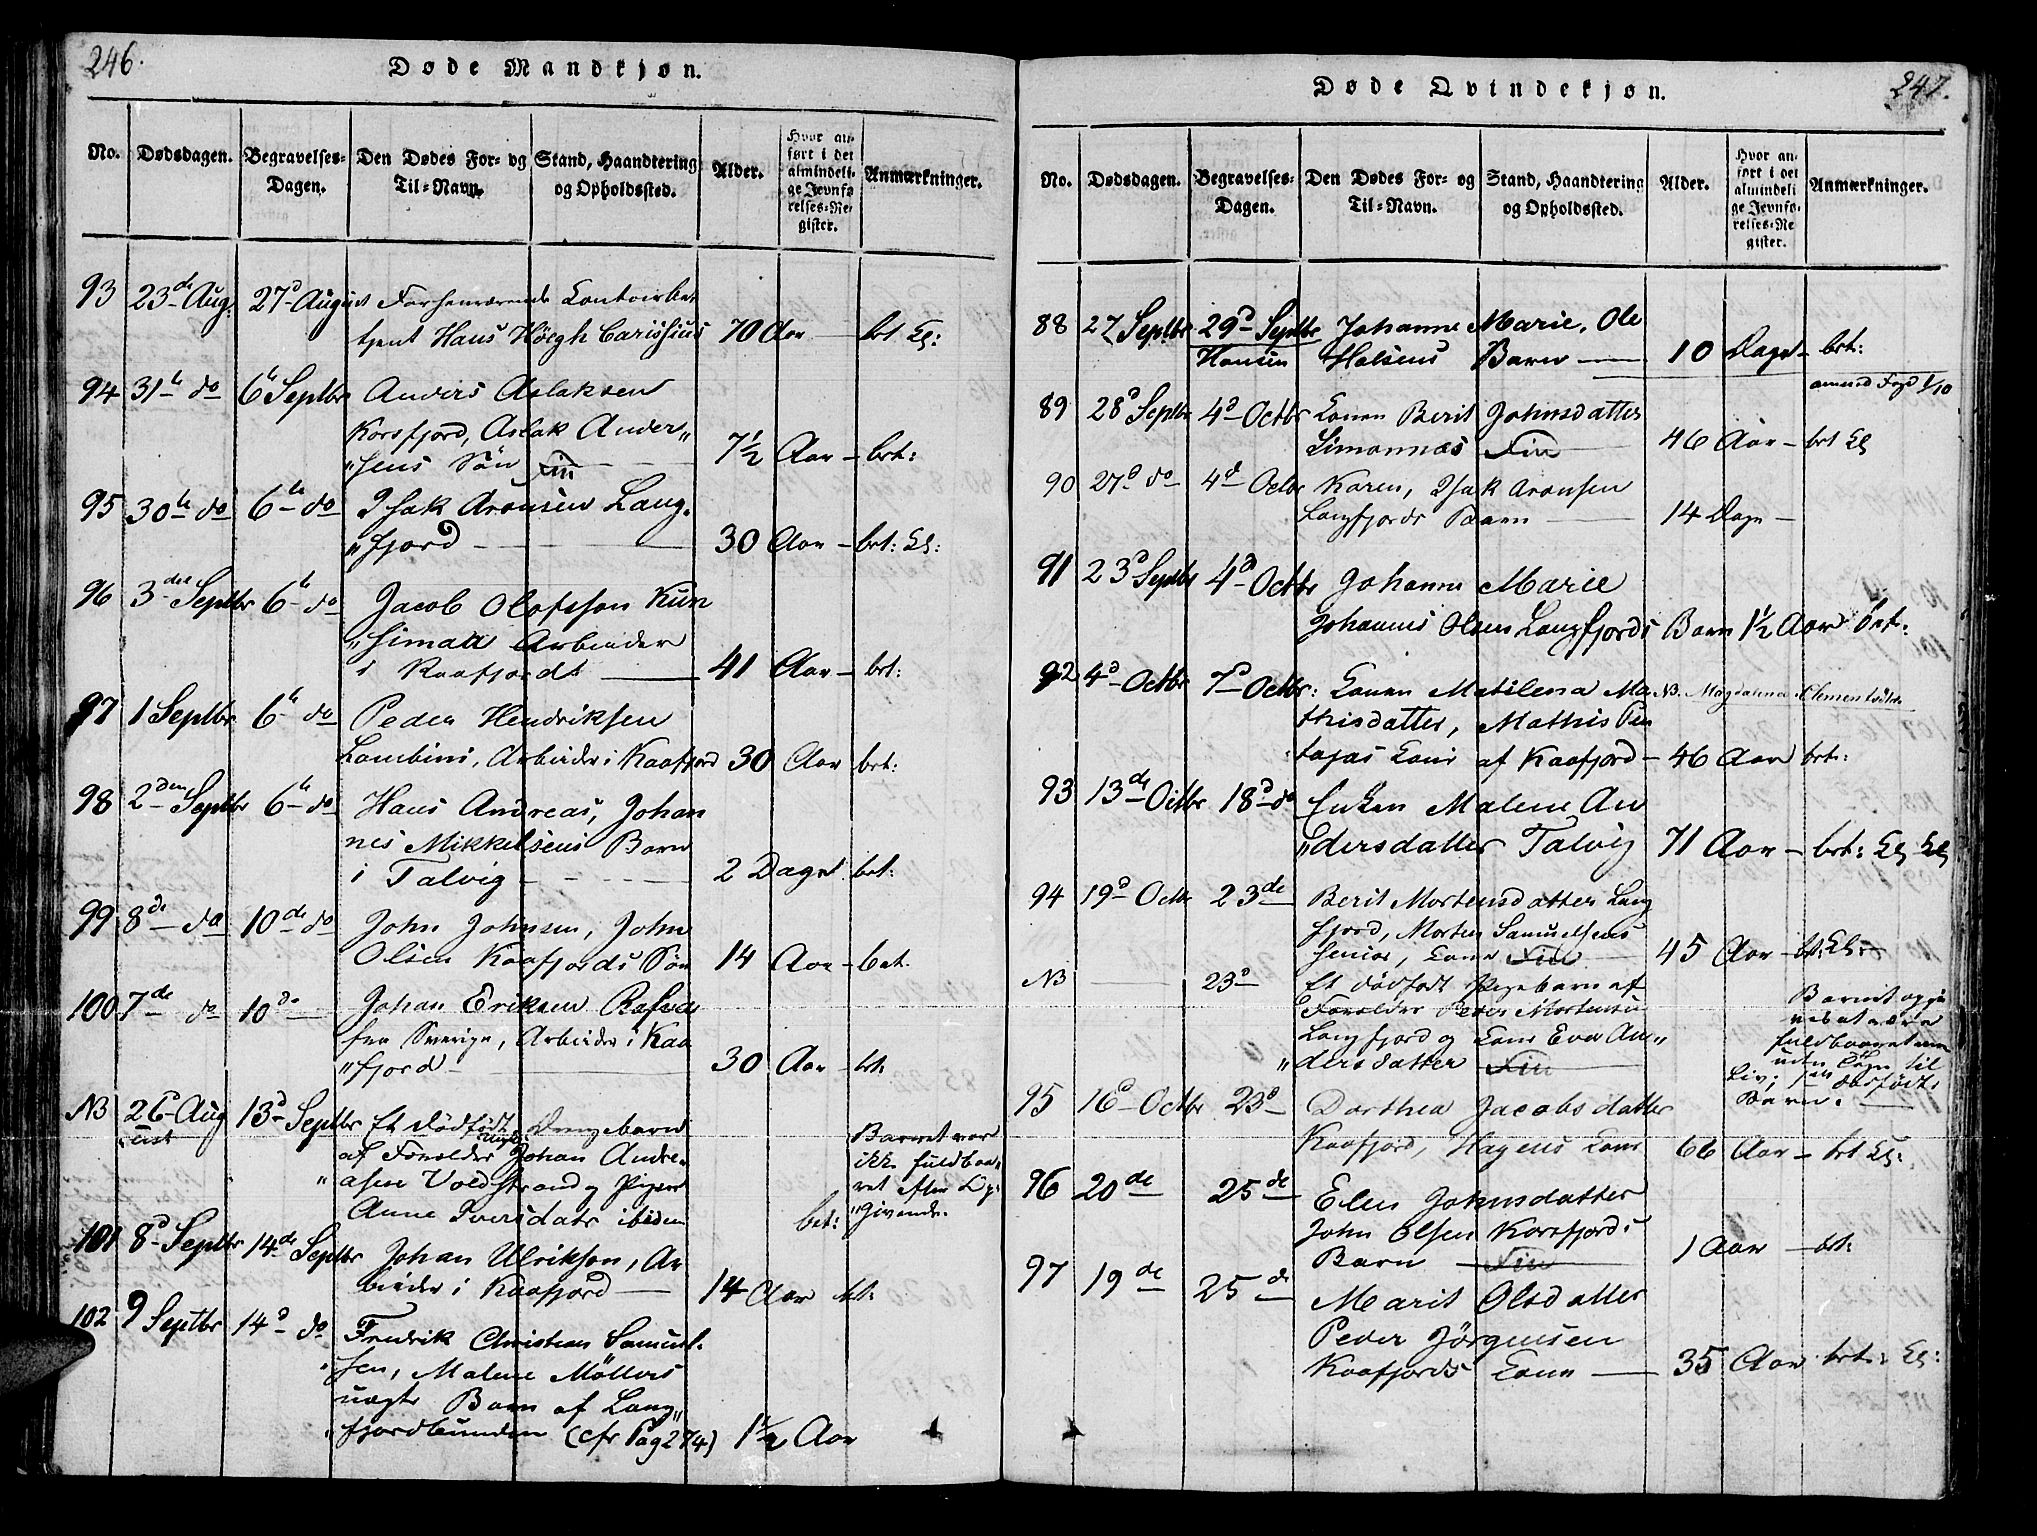 246.
Døde Mandkjøn.
No. Dødsdagen. Begravelses-Dagen. Den Dødes For- og Til-Navn. Stand, Haandtering og Opholdssted. Alder. Hvor anført i det almindelige Jevnførelses-Register. Anmærkninger.
93 23de Aug. 27d August Forhenværende Contoirbe
tjent Hans Höegh Carissius 70 Aar brt
94 31te do 6te Septbr Anders Aslaksen
Korsfjord, Aslak Ander„
„sens Søn Fin 7½ Aar – brt:
95 30te do 6te do Isak Aronsen Lang-
„fjord 30 Aar – brt:
96 3die Septbr 6te do Jacob Olofsson Kun
„simaa Arbeider
i Kaafjordt 41 Aar – brt:
97 1 Septbr 6te do Peder Hendriksen
Lambini, Arbeider i Kaafjord 30 Aar brt:
98 2den Septbr 6te do Hans Andreas, Johan
nes Mikkelsens Barn
i Talvig 2 Dage brt:
99 8de do 10de do John Johnsen, John
Olsen Kaafjords Søn 14 Aar – brt.
100 7de do 10de Johan Eriksen
fra Sverige, Arbeider i Kaa
„fjord 30 Aar – brt:
NB 26 Aug 13d Septbr Et dødfødt uægte Drengebarn
af Forældre Johan Andre-
„asen Voldstrand og Pigen
Anne Iversdatr ibidem brt:
Barnet var
ikke fuldbaa„
ret efter Op-
„givende.
101 8d Septbr 14de Septbr Johan Ulrikson, Ar
beider i Kaafjord 14 Aar brt:
102 9 Septbr 14d do Fredrik Christian Samuel-
„sen, Malene Möllers
uægte Barn af Lang„
„fjordbunden (cfr Pag 274) 1½ Aar
247.
Døde Qvindekjøn.
No. Dødsdagen. Begravelses-Dagen. Den Dødes For- og Til-Navn. Stand, Haandtering og Opholdssted. Alder. Hvor anført i det almindelige Jevnførelses-Register. Anmærkninger.
88 27 Septbr 29d Septbr Johanne Marie, Ole
Hansen Halsens Barn 10 Dage – brt:
anmed Fogd 1/10
89 28d Septbr 4d Octbr Konen Berit Johnsdatter
Simannæs Fin 46 Aar – brt
90 27d do 4d Octbr Karen, Isak Aronsen
Langfjords Barn 14 Dage –
91 23d Septbr 4d Octbr Johanne Marie
Johannes Olsen Langfjords Barn 1½ Aar brt:
92 4d Octbr 7d Octbr: Konen Matilena Ma NB. Magdalena Clementsdtr
thisdatter, Mathis Pen
tajas Kone af Kaafjord – 46 Aar brt:
93 13de Octbr 18d do Enken Malene An
„dersdatter Talvig 71 Aar – brt:
94 19d Octbr 23de Berit Mortensdatter Lang
fjord, Morten Samuelsens
senior, Kone Fin 45 Aar – brt:
NB 23d Et dødfødt Pigebarn af
Forældre Peder Mortensen
Langfjord og Kone Eva An„
„dersdatter Fin
Barnet opgi
ves at være
fuldbaaret men
uden Tegn til
Liv; dødfødt
Barn.
95 16d Octbr 23d Dorthea Jacobsdatter
Kaafjord, Hagens Kone 66 Aar – brt
96 20de 25de Elen Johnsdatter
John Olsen Korsfjords
Barn Fin 1 Aar – brt:
97 19de 25de Marit Olsdatter
Peder Jörgensen
Kaafjords Kone 35 Aar brt: